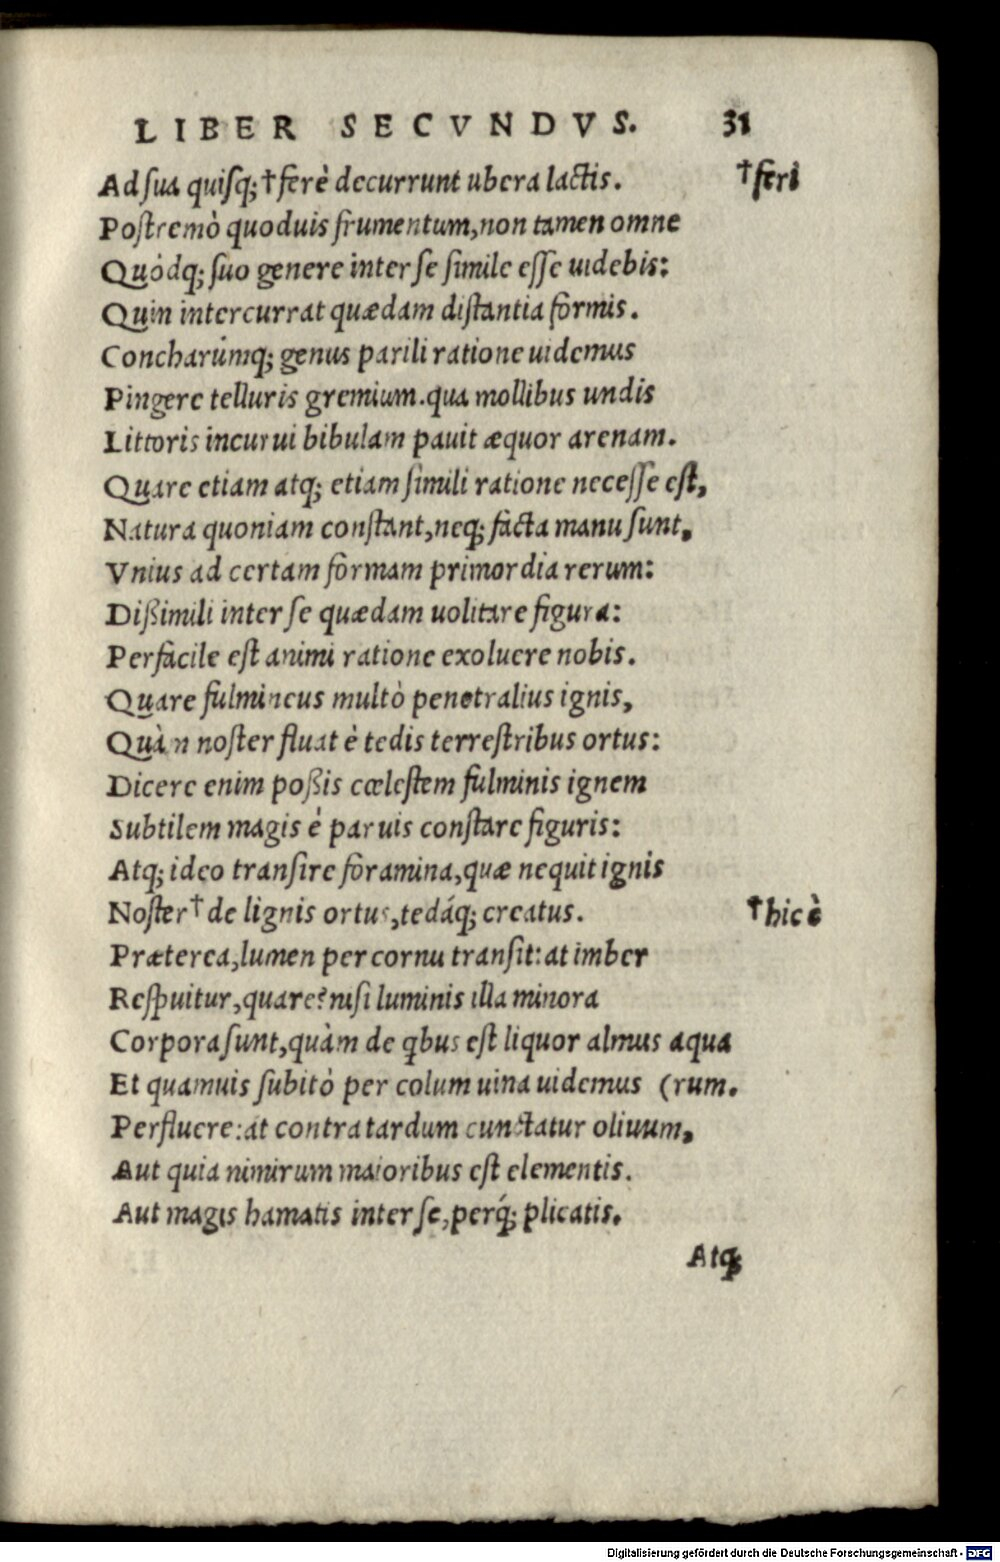 LIBER SECVNDVS. 31
Ad sua quisq; †ferè decurrunt ubera lactis. †feri
Postremò quoduis frumentum, non tamen omne
Quódq; suo genere inter se simile esse uidebis:
Quin intercurrat quædam distantia formis.
Concharúmq; genus parili ratione uidemus
Pingere telluris gremium. qua mollibus undis
Littoris incurui bibulam pauit æquor arenam.
Quare etiam atq; etiam simili ratione necesse est,
Natura quoniam constant, neq; facta manu sunt,
Vnius ad certam formam primordia rerum:
Dißimili inter se quædam uolitare figura:
Perfacile est animi ratione exoluere nobis.
Quare fulmineus multò penetralius ignis,
Quàm noster fluat è tedis terrestribus ortus:
Dicere enim poßis cœlestem fulminis ignem
Subtilem magis è paruis constare figuris:
Atq; ideo transire foramina, quæ nequit ignis
Noster † de lignis ortus, tedáq; creatus. †hic è
Præterea, lumen per cornu transit: at imber
Respuitur, quare? nisi luminis illa minora
Corpora sunt, quàm de qbus est liquor almus aqua
Et quamuis subitò per colum uina uidemus (rum.
Perfluere: at contra tardum cunctatur oliuum,
Aut quia nimirum maioribus est elementis.
Aut magis hamatis inter se, perq́; plicatis.
Atq;
Digitalisierung gefördert durch die Deutsche Forschungsgemeinschaft - DFG